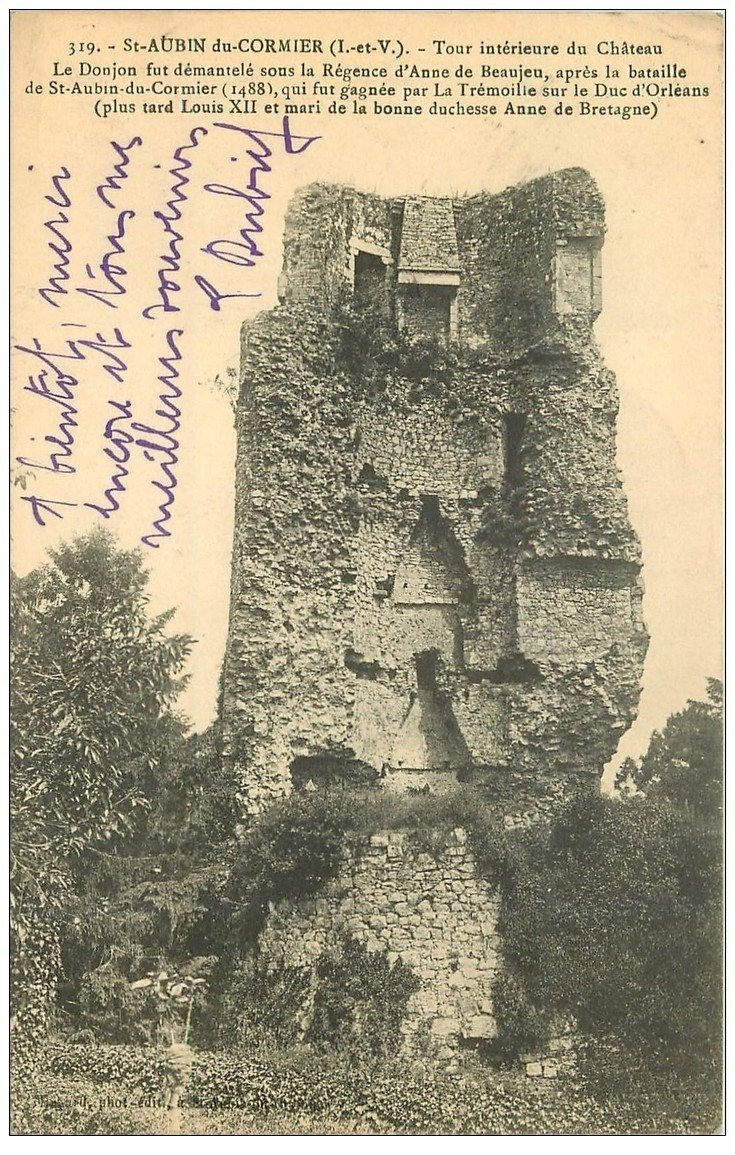 319. - St-AUBIN du-CORMIER (I.-et-V.). - Tour intérieure du Château
Le Donjon fut démantelé sous la Régence d'Anne de Beaujeu, après la bataille
de St-Aubin-du-Cormier (1488), qui fut gagnée par La Trémoille sur le Duc d'Orléans
(plus tard Louis XII et mari de la bonne duchesse Anne de Bretagne)
A bientôt, merci
encore et tous mes
meilleurs souvenirs
phot-édit., à